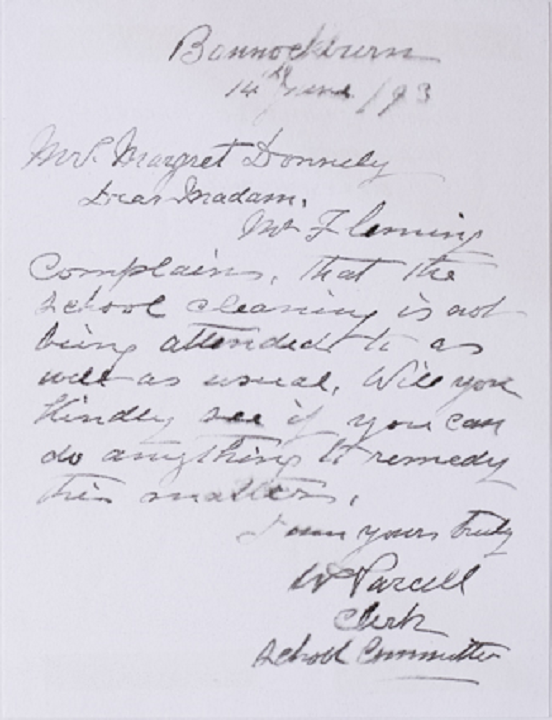 Bannockburn
14th June /93
Mrs. Margret Donnely
Dear Madam,
Mr Fleming
Complains, that the
School cleaning is not
being attended to as
well as usual, Will you
Kindly see if you can
do anything to remedy
this matter,
I am yours truly
W Parcell
Clerk
School Committee